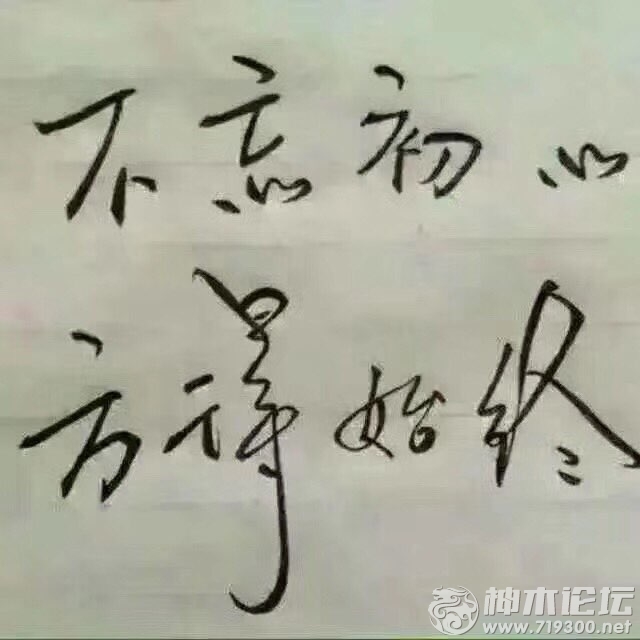 不忘初心
方得始终
神木论坛
www.719300.net